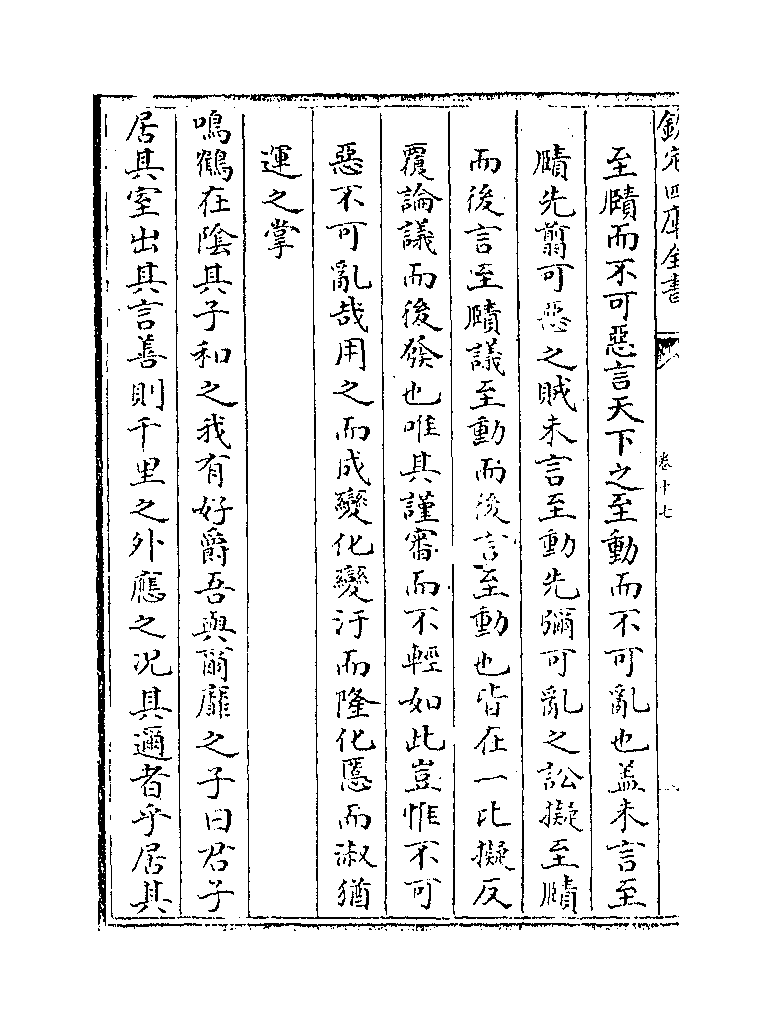 欽定四庫全書
卷十七
至賾而不可惡言天下之至動而不可亂也盖未言至
賾先翦可惡之賊未言至動先彌可亂之訟擬至賾
而後言至賾議至動而後言至動也皆在一比擬反
覆論議而後發也唯其謹審而不輕如此豈惟不可
惡不可亂哉用之而成變化變汙而隆化慝而淑猶
運之掌
鳴鶴在陰其子和之我有好爵吾與爾靡之子曰君子
居其室出其言善則千里之外應之况其邇者乎居其